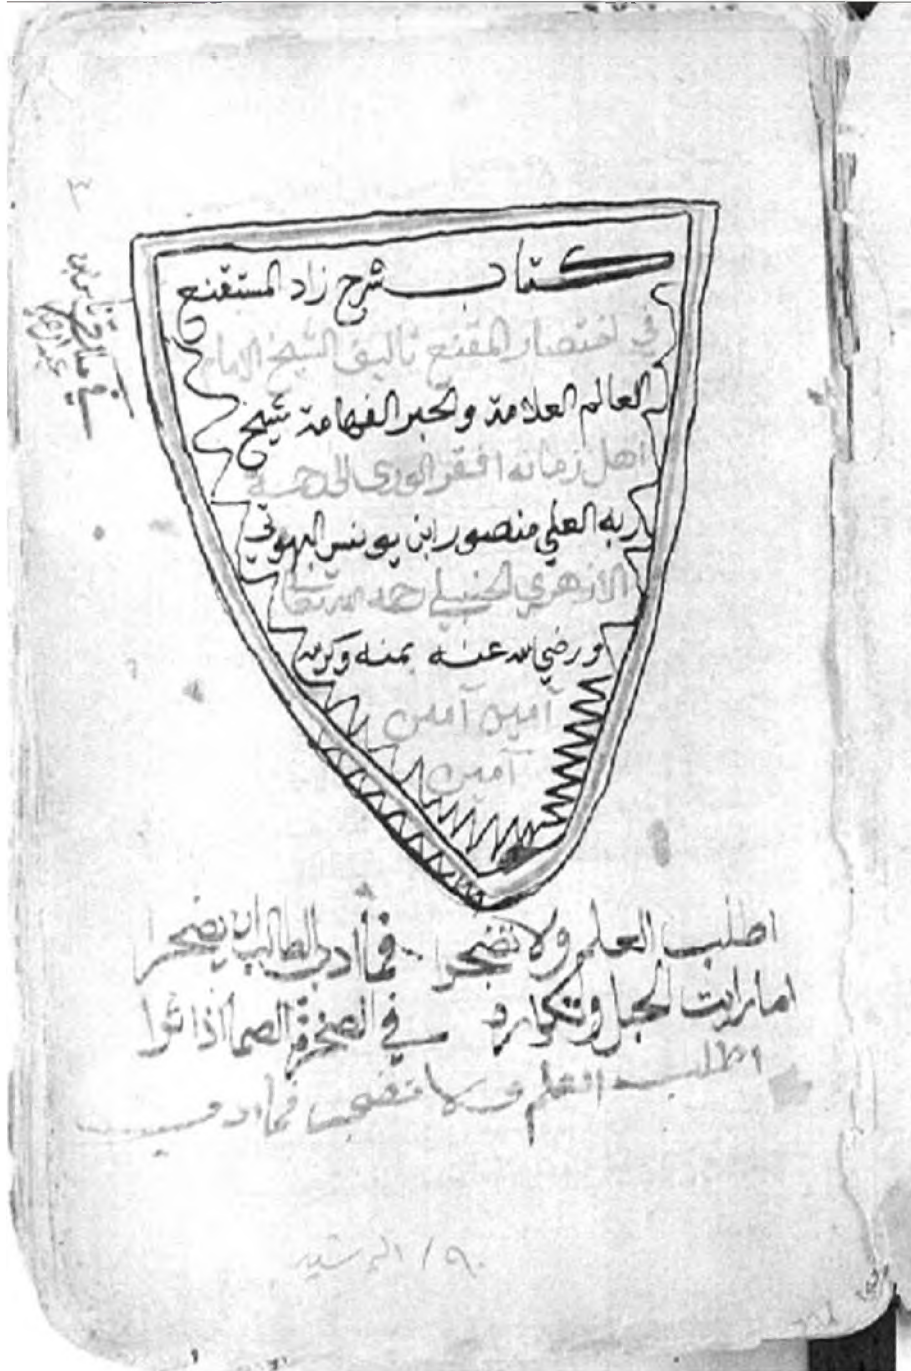 ٣
كتاب شرح زاد المستقنع
في اختصار المقنع تأليف الشيخ الامام
العالم العلامة والحبر الفهامة شيخ
اهل زمانه افقر الورى الى رحمة
ربه العلي منصور ابن يونس البهوتي
الازهري الحنبلي رحمه الله تعالى
ورضي الله عنه بمنه وكرمه
آمين آمين
آمين
اطلب العلم ولا تضجرا فما أدب الطالب ان يضجرا
اما رايت الحبل وتكراره في الصخرة الصما اذا اثرا
اطلب العلم ولا تضجر فما اد
٩٠ / الرشيد